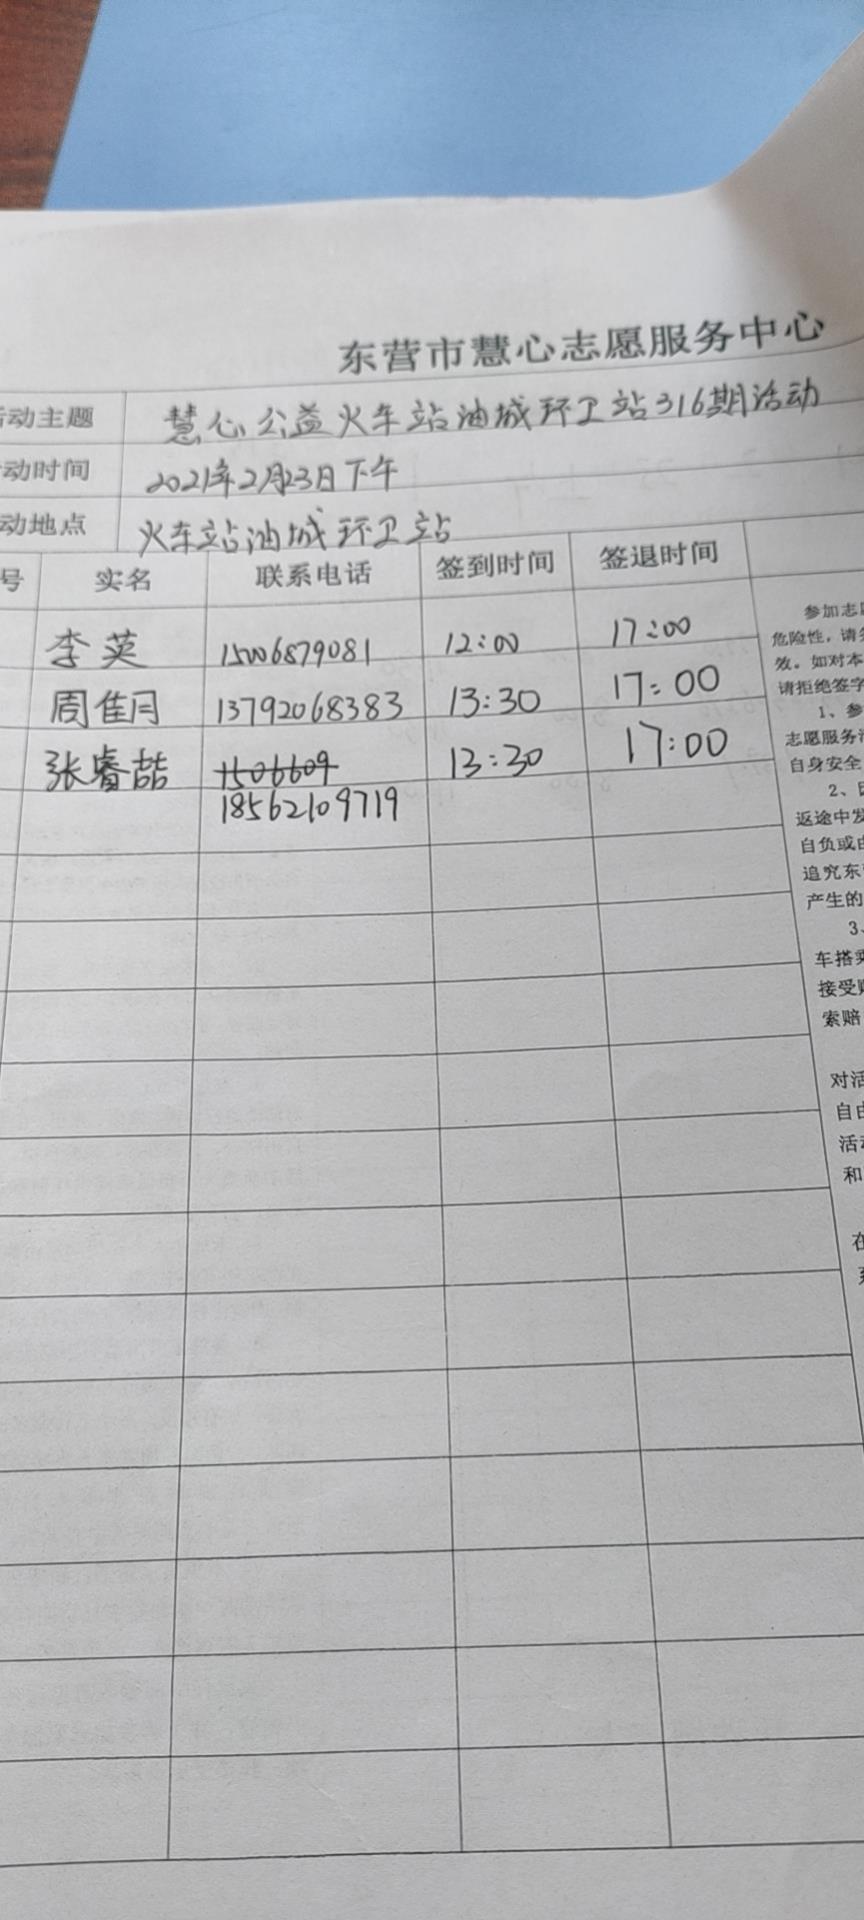 东营市慧心志愿服务中心
活动主题 慧心公益火车站油城环卫站316期活动
动时间 2021年2月23日下午
动地点 火车站油城环卫站
号 实名 联系电话 签到时间 签退时间
李英 15006879081 12:00 17:00
周佳月 13792068383 13:30 17:00
张睿喆 1506609 13:30 17:00
18562109719
参加志愿
危险性，请务
效。如对本
请拒绝签字
1、参
志愿服务活
自身安全
2、因
返途中发
自负或由
追究东营
产生的
3、
车搭乘
接受赔
索赔
对活
自由
活动
和
在